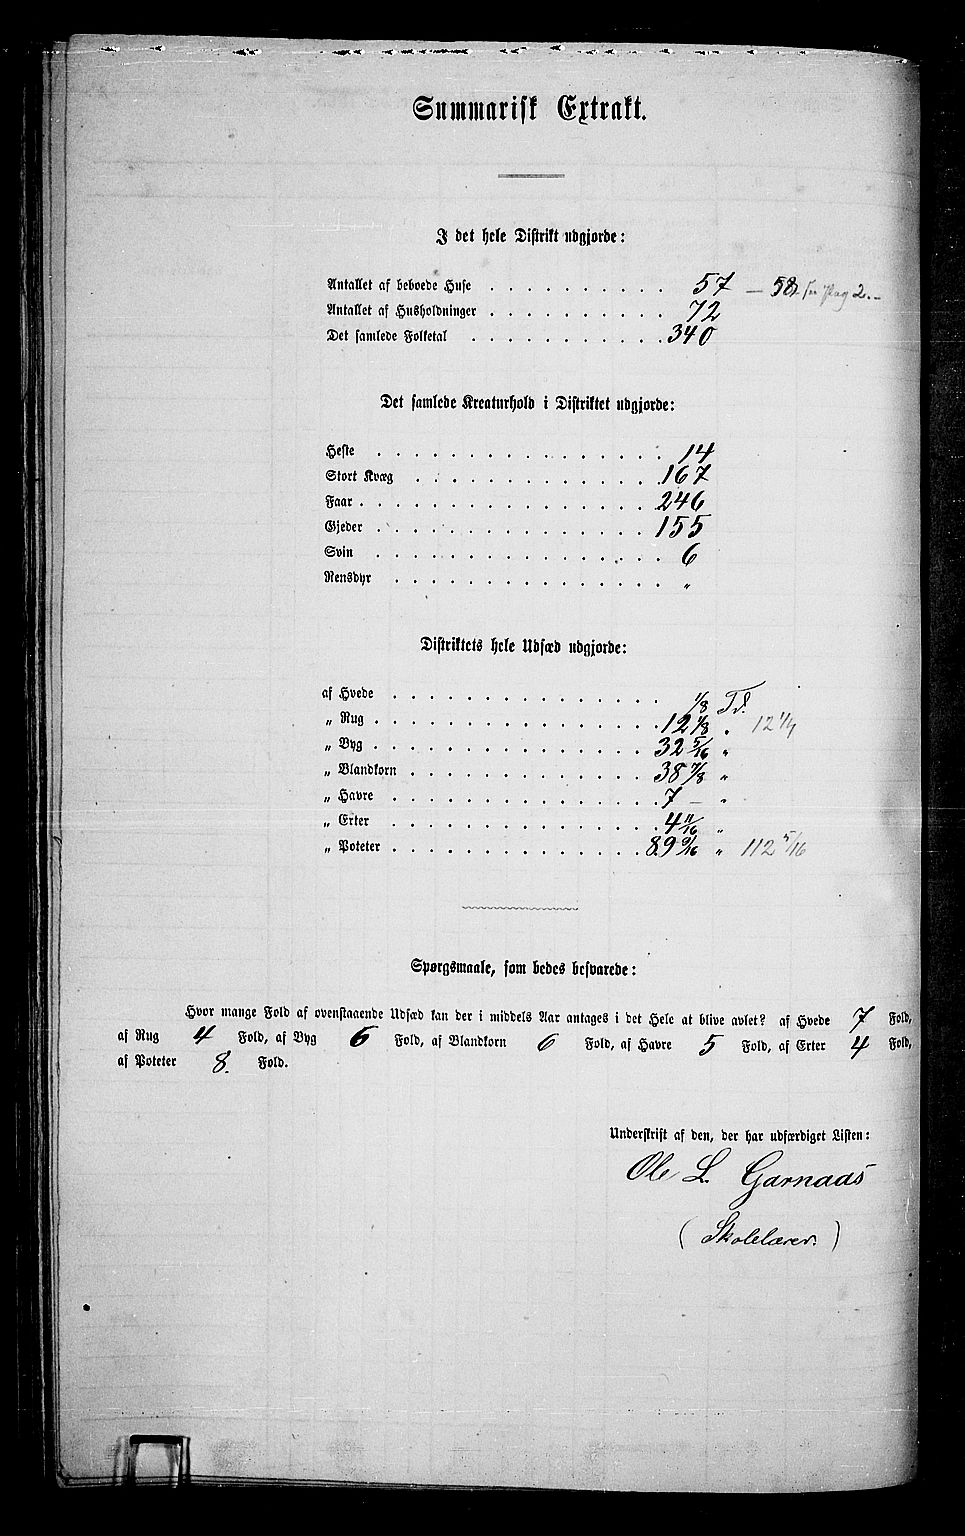 Summarisk Extrakt.
I det hele Distrikt udgjorde:
Antallet af beboede Huse . . . . . . . . 57 — 58 see Pag 2. -
Antallet af Husholdninger . . . . . . . . 72
Det samlede Folketal . . . . . . . . 340
Det samlede Kreaturhold i Distriktet udgjorde:
Heste . . . . . . . . . . . . 14
Stort Kvæg . . . . . . . . . . 167
Faar . . . . . . . . . . . . 246
Gjeder . . . . . . . . . . . . 155
Svin . . . . . . . . . . . . 6
Rensdyr . . . . . . . . . . . "
Distriktets hele Udsæd udgjorde:
af Hvede . . . . . . . . . . . 1/8 Td.
„ Rug . . . . . . . . . . . . 12 1/8 "
„ Byg . . . . . . . . . . . . 32 5/16 "
„ Blandkorn . . . . . . . . . . 38 7/8 "
„ Havre . . . . . . . . . . . 7 — "
„ Erter . . . . . . . . . . . 4 11/16 "
„ Poteter . . . . . . . . . . . 89 9/16 " 112 5/16
Spørgsmaale, som bedes besvarede:
Hvor mange Fold af ovenstaaende Udsæd kan der i middels Aar antages i det Hele at blive avlet? af Hvede 7 Fold,
af Rug 4 Fold, af Byg 6 Fold, af Blandkorn 6 Fold, af Havre 5 Fold, af Erter 4 Fold,
af Poteter 8. Fold.
Underskrift af den, der har udfærdiget Listen:
Ole L. Garnaas
(Skolelærer.)